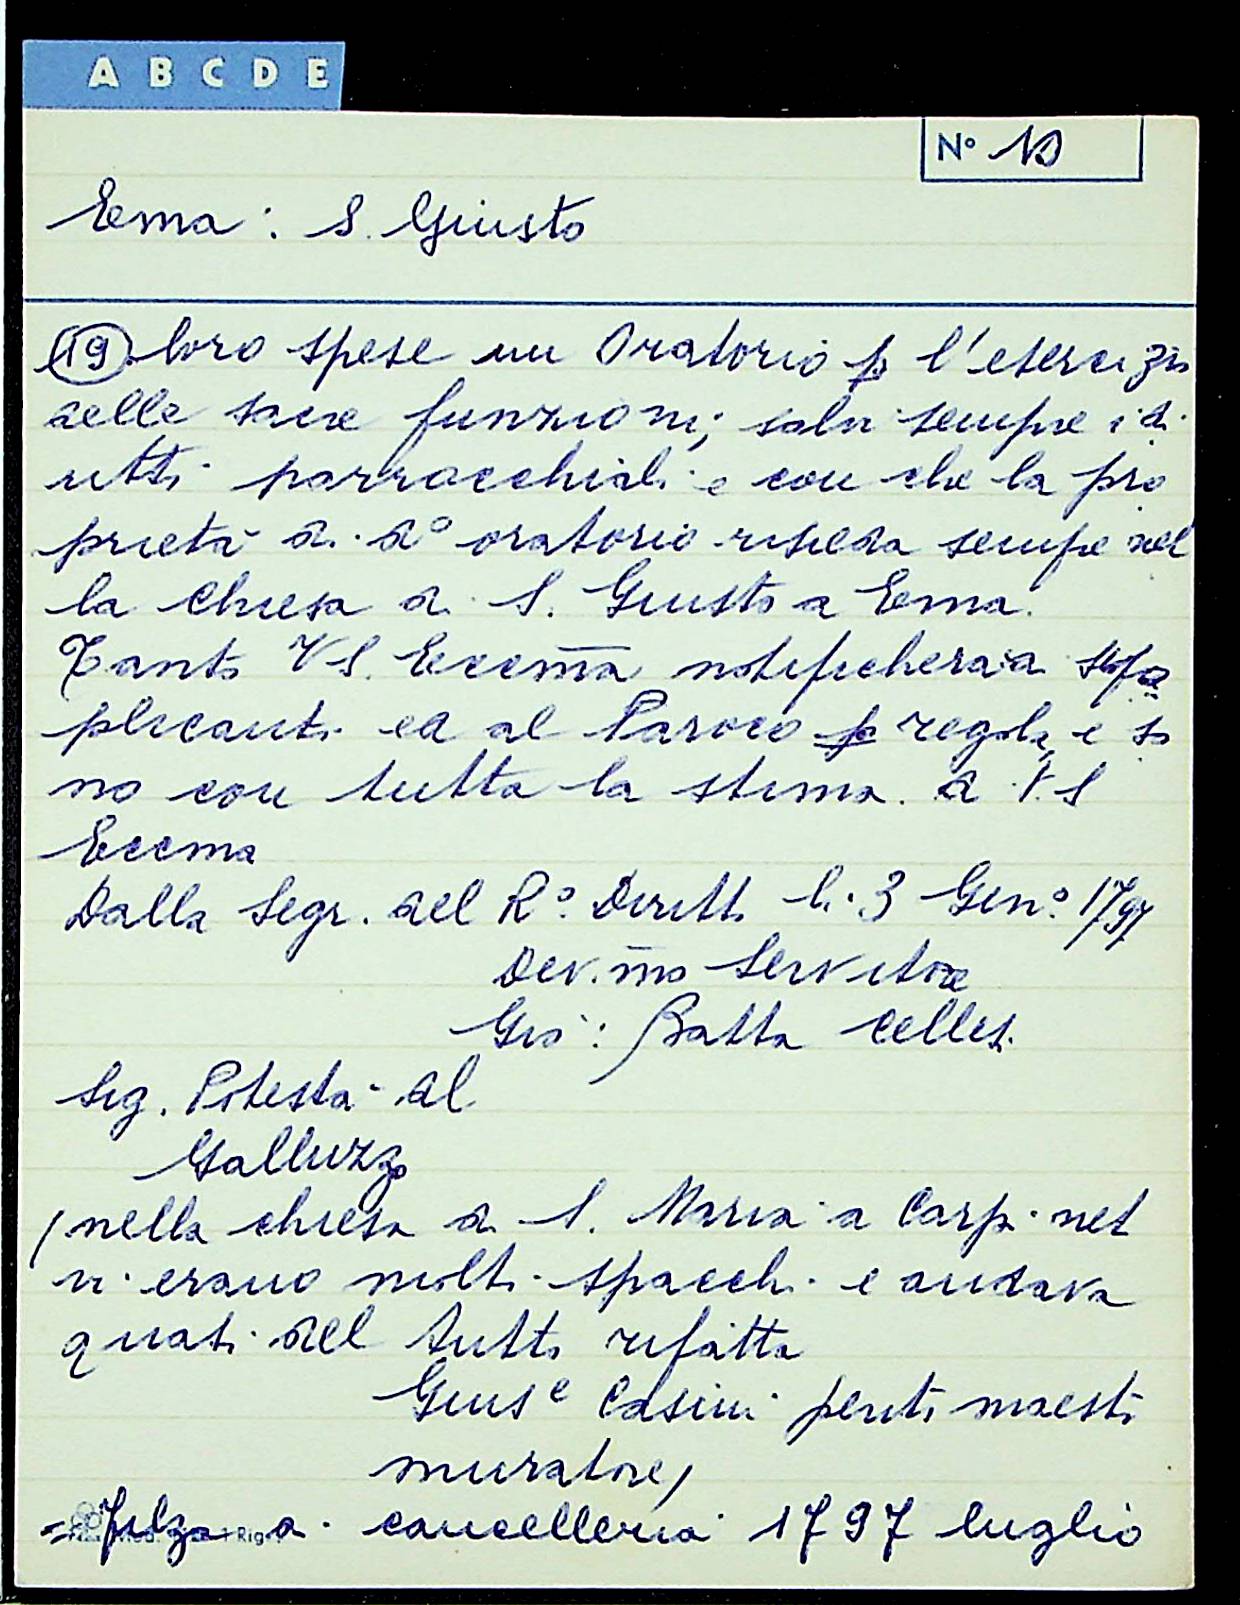 A B C D E
N° 10
Ema: S. Giusto
(19) loro spese un Oratorio p l'esercizio
delle sacre funzioni; salvi sempre i di
ritti parrocchiali e con che la pro
prietà di do oratorio risieda sempre nel
la Chiesa di S. Giusto a Ema.
Tanto VS. Eccema notificherà ai
plicanti ed al Paroco p regola, e so
no con tutta la stima. di V.S
Eccma
Dalla Segr. del Ro. Diritto li. 3 Genº. 1797
Dev.mo Servitore
Gio: Batta Cellesi
Sig. Potestà del
Galluzzo
(nella chiesa di S. Maria a Carpineti
vi erano molti spacchi e andava
quasi del tutto rifatta
Giuse Casini perito maestro
muratore)
= Filza di cancelleria 1797 luglio